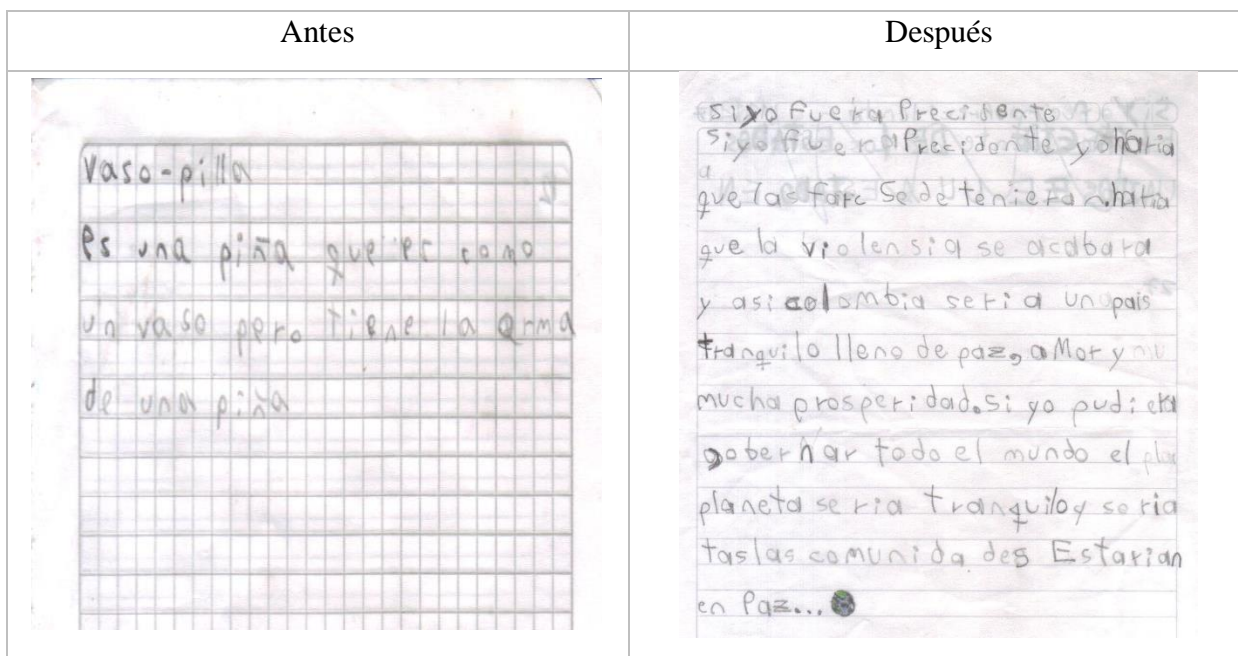 Antes
Después
vaso-pilla
es una piña que es como
un vaso pero tiene la orma
de una piña
si yo fuera Precidente
si yo fuera Precidente yo haria
que las farc se de tenieran haria
que la violensia se acabara
y asi colombia seria un pais
tranquilo lleno de paz, aMor y mu
mucha prosperidad. si yo pudiera
gobernar todo el mundo el pla
planeta seria tranquilo y seria
tas las comunida des Estarian
en Paz...